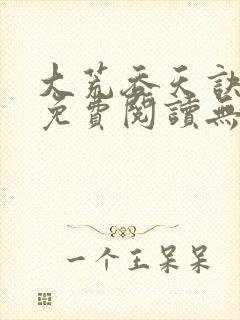 大荒吞天訣
免費閱讀無
一个王呆呆